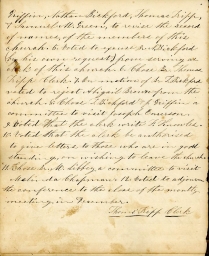 Griffin, Nathan Bickford, Thomas Ripp,
Samuel M. Green, to revise the record
of names, of the members of this
church & Voted to excuse N. Bickford
by his own request from serving as
clerk of this church & Chose Thomas
Ripp Clerk & on motion of L. Bickford
voted to reject Abigail Brown from the
church & Chose L. Bickford & J. Griffin a
committee to visit Joseph Emerson
& Voted that the clerk write to
10 Voted that the clerk be authorised
to give letters to those who are in good
standing, on wishing to leave the church
11 Chose M. Libbey a committee to visit
Malinda Chapman 12 Voted to adjourn
the conference to the close of the monthly
meeting in December.
Thomas Ripp Clerk